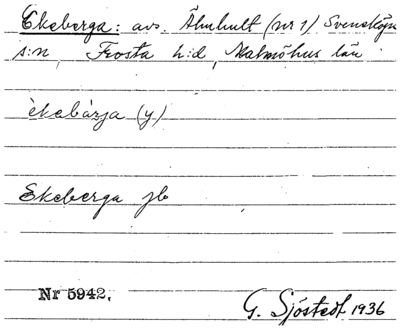 Ekeberga: avs. Älmhult (nr 1) Svensköps
s:n, Frosta h:d, Malmöhus län
èkabárja (y)
Ekeberga jb
Nr 5942.
G. Sjöstedt 1936